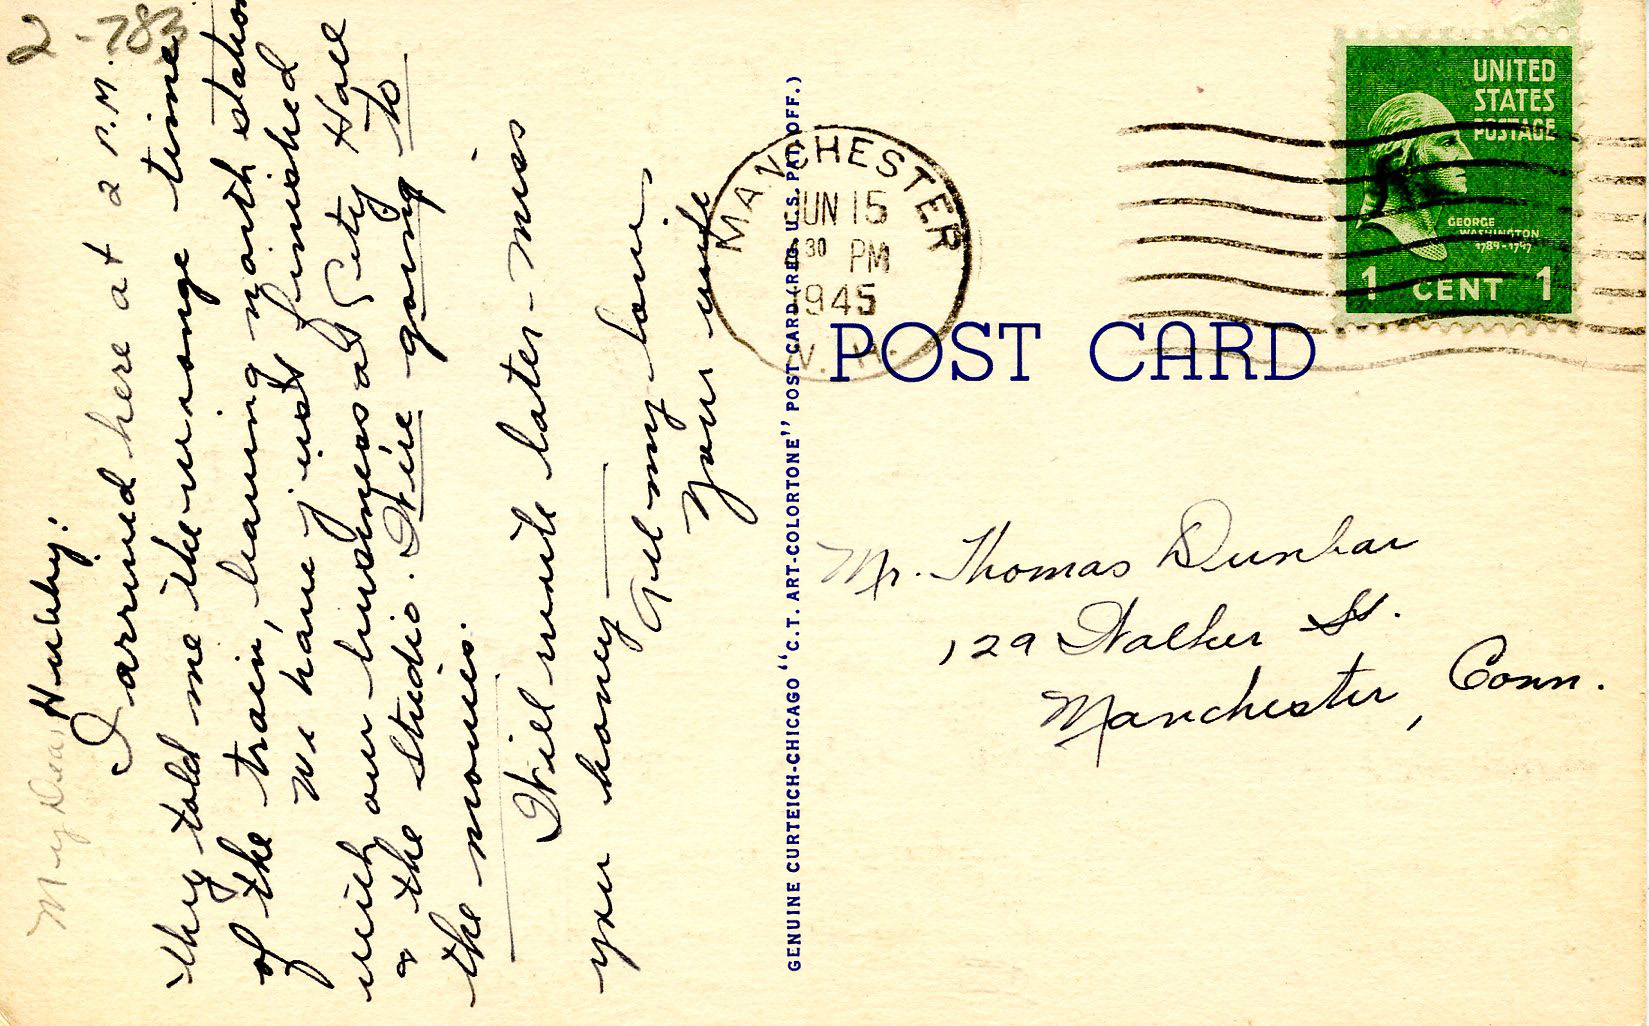 2-783
My Dear Hubby:
I arrived here at 2 P.M.
they told me the wrong time
of the train, leaving north station
We have just finished
with our business at City Hall
& the studio. We're going to
the movies.
Will write later - miss
you honey —
All my love,
Your wife
GENUINE CURTEICH-CHICAGO "C.T. ART-COLORTONE" POST CARD (REG. U.S. PAT. OFF.)
MANCHESTER
JUN 15
30 PM
1945
N.H.
UNITED
STATES
POSTAGE
GEORGE
WASHINGTON
1789-1797
1 CENT 1
POST CARD
Mr. Thomas Dunbar
129 Walker St.
Manchester, Conn.